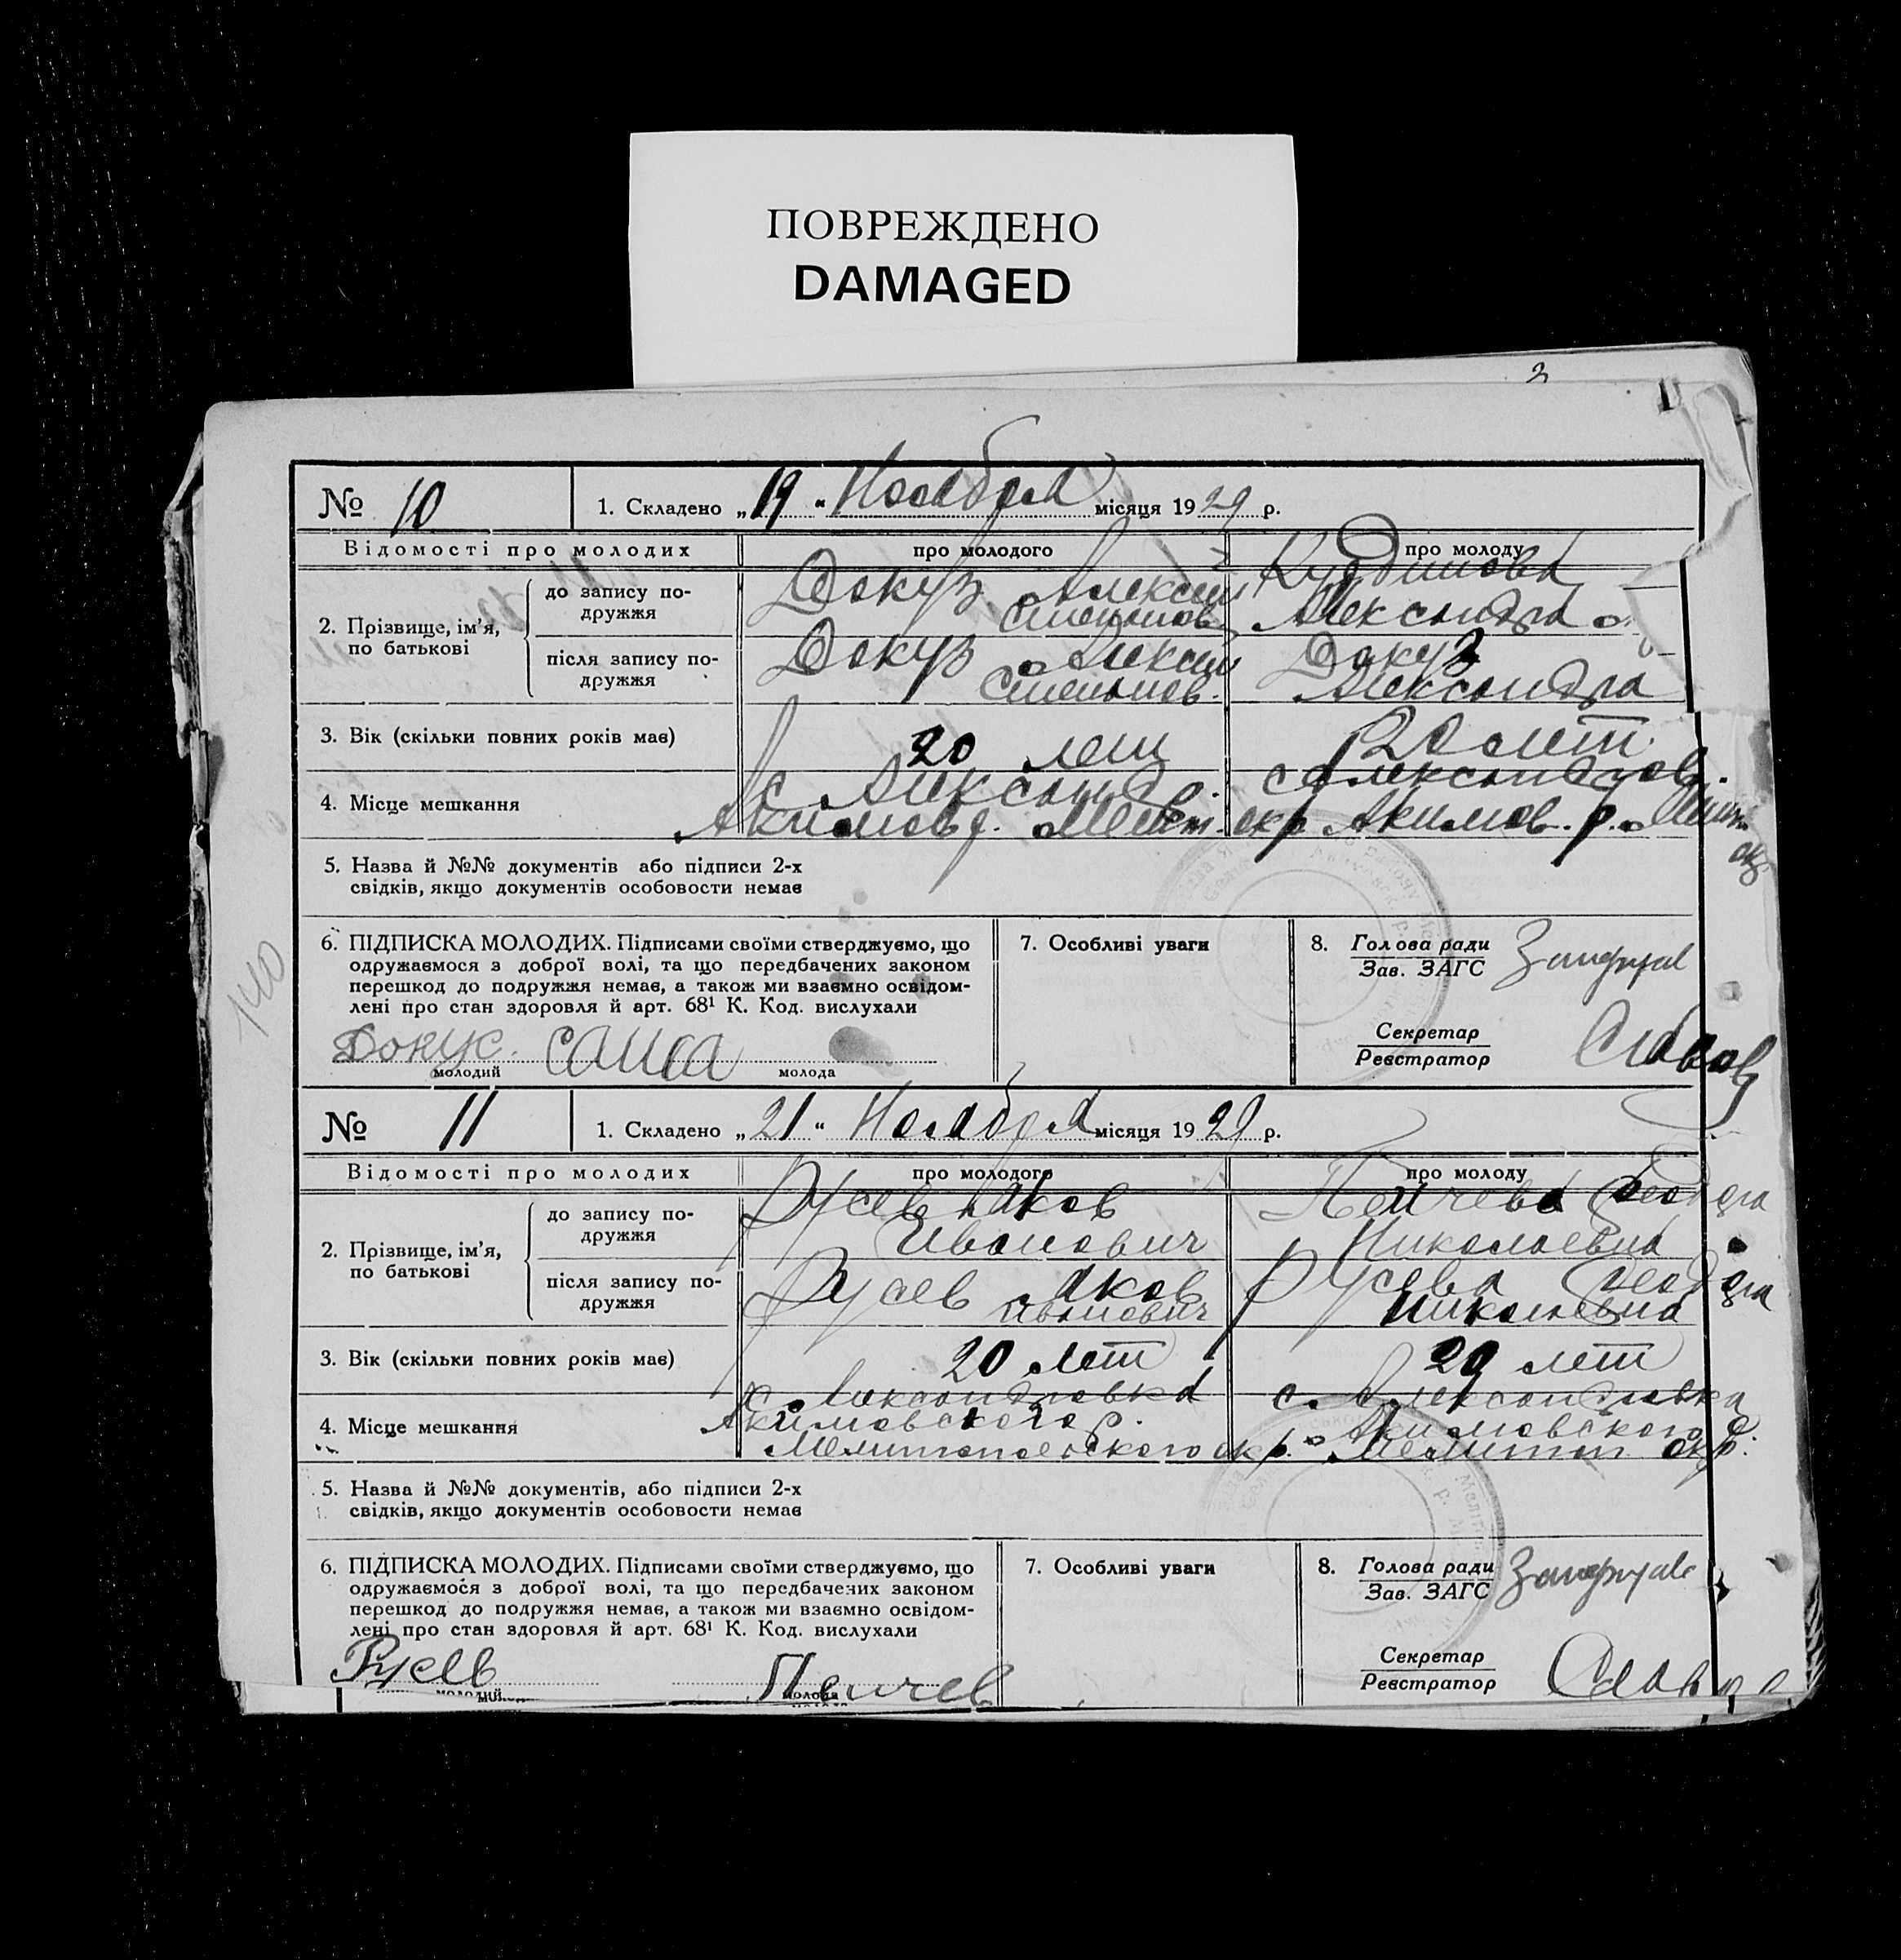 ПОВРЕЖДЕНО
DAMAGED
№ 10
1. Складено „19“ Ноября місяця 1929 р.
Відомості про молодих
про молодого
про молоду
2. Прізвище, ім’я, по батькові
до запису подружжя
Докуз Алексей
Степанов
Александра
після запису подружжя
Докуз Алексей
Степанов.
Докуз
Александра
3. Вік (скільки повних років має)
20 лет
20 лет
4. Місце мешкання
с. Александр.
Акимов р. Мелит. окр
с Александров.
Акимов. р. Мелит.
окр
5. Назва й №№ документів або підписи 2-х
свідків, якщо документів особовости немає
6. ПІДПИСКА МОЛОДИХ. Підписами своїми стверджуємо, що
одружаємося з доброї волі, та що передбачених законом
перешкод до подружжя немає, а також ми взаємно освідом-
лені про стан здоровля й арт. 68¹ К. Код. вислухали
Докус. Саша
молодий
молода
7. Особливі уваги
8. Голова ради
Зав. ЗАГС
Секретар
Реєстратор
140
№ 11
1. Складено „21“ Ноября місяця 1929 р.
Відомості про молодих
про молодого
про молоду
2. Прізвище, ім’я, по батькові
до запису подружжя
Русев Яков
Иванович
Пейчева Феодора
Николаевна
після запису подружжя
Русев Яков
Иванович
Русева Феодора
Николаевна
3. Вік (скільки повних років має)
20 лет
20 лет
4. Місце мешкання
с. Александровка
Акимовского р.
Мелитопольского окр.
с. Александровка
Акимовского р.
Мелитоп окр.
5. Назва й №№ документів, або підписи 2-х
свідків, якщо документів особовости немає
6. ПІДПИСКА МОЛОДИХ. Підписами своїми стверджуємо, що
одружаємося з доброї волі, та що передбачених законом
перешкод до подружжя немає, а також ми взаємно освідом-
лені про стан здоровля й арт. 68¹ К. Код. вислухали
Русев
Пейчев
молодий
молода
7. Особливі уваги
8. Голова ради
Зав. ЗАГС
Секретар
Реєстратор